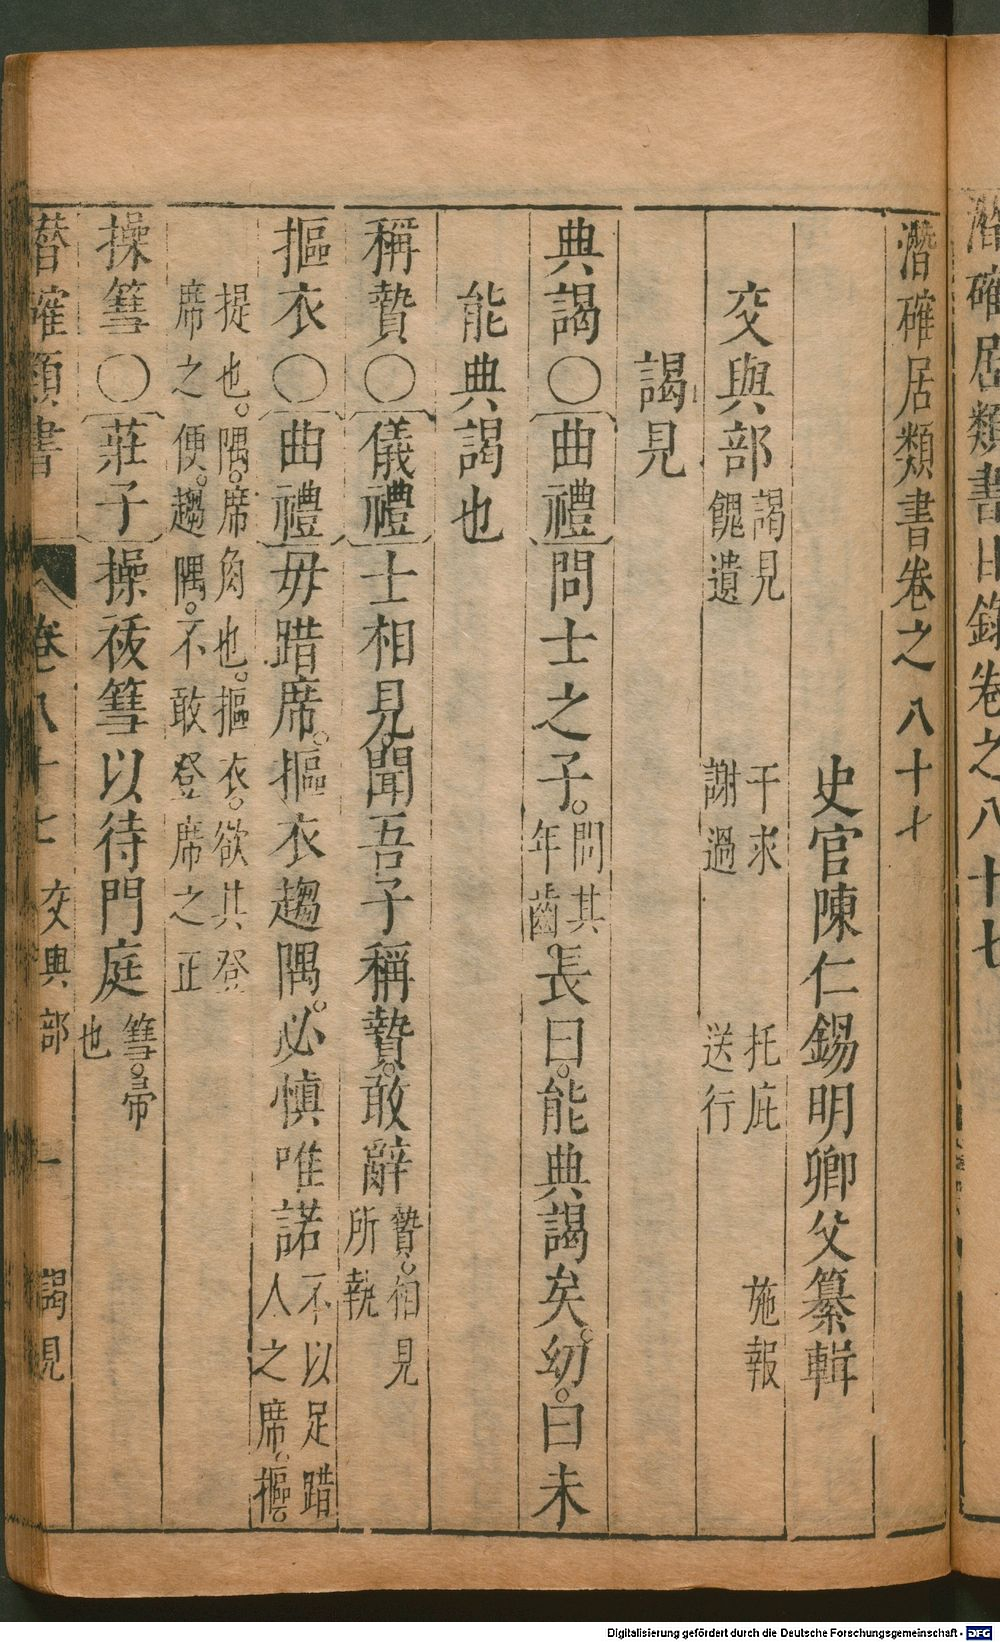 潛確居類書目錄卷之八十七
潛確居類書卷之八十七
史官陳仁錫明卿父纂輯
交與部 謁見 干求 托庇 施報
餽遺 謝過 送行
謁見
典謁〇〔曲禮〕問士之子。問其
年齒。長曰。能典謁矣。幼。曰未
能典謁也
稱贄〇〔儀禮〕士相見。聞吾子稱贄。敢辭 贄。相見
所執
摳衣〇〔曲禮〕毋踖席。摳衣趨隅。必慎唯諾 不以足踖
人之席。摳。
提也。隅。席角也。摳衣。欲其登
席之便。趨隅。不敢登席之正
操篲〇〔莊子〕操祓篲以待門庭 篲。帚
也
潛確類書 卷八十七 交與部 一 謁見
Digitalisierung gefördert durch die Deutsche Forschungsgemeinschaft - DFG